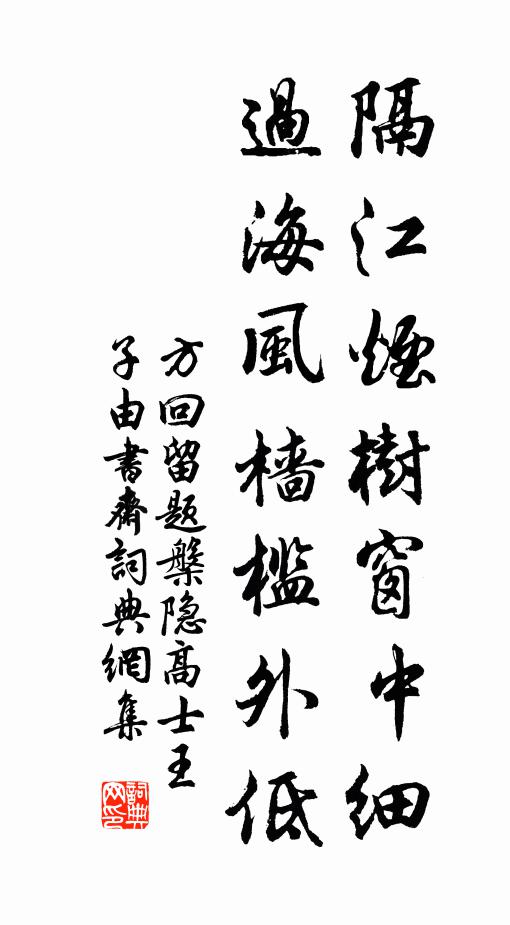 隔江煙樹窗中細
過海風檣檻外低
方回留題槃隐高士王
子由書齋詞典網集
詞典网印